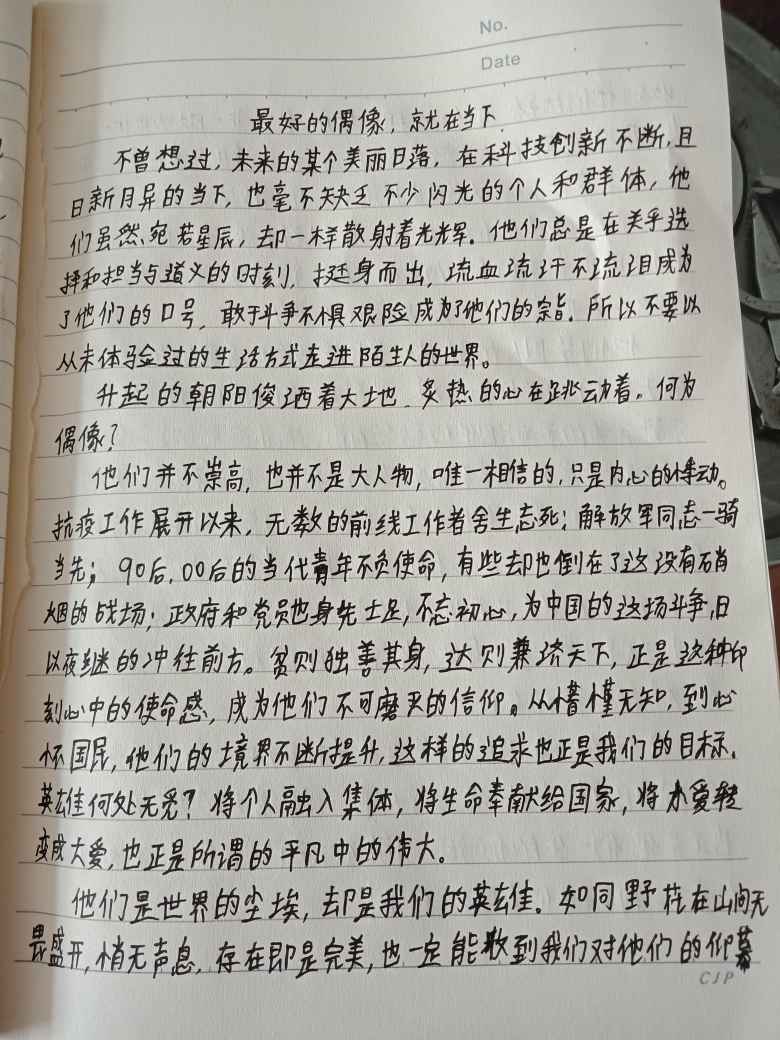 No.
Date
最好的偶像，就在当下
不曾想过，未来的某个美丽日落，在科技创新不断，且
日新月异的当下，也毫不缺乏不少闪光的个人和群体，他
们虽然宛若星辰，却一样散射着光辉。他们总是在关乎选
择和担当与道义的时刻，挺身而出，流血流汗不流泪成为
了他们的口号，敢于斗争不惧艰险成为了他们的宗旨。所以不要以
从未体验过的生活方式走进陌生人的世界。
升起的朝阳俊洒着大地，炙热的心在跳动着。何为
偶像？
他们并不崇高，也并不是大人物，唯一相信的，只是内心的悸动。
抗疫工作展开以来，无数的前线工作者舍生忘死；解放军同志一骑
当先；90后，00后的当代青年不负使命，有些却也倒在了这没有硝
烟的战场；政府和党员也身先士足，不忘初心，为中国的这场斗争，日
以夜继的冲往前方。贫则独善其身，达则兼济天下，正是这种印
刻心中的使命感，成为他们不可磨灭的信仰。从懵懂无知，到心
怀国民，他们的境界不断提升，这样的追求也正是我们的目标。
英雄何处无觅？将个人融入集体，将生命奉献给国家，将小爱转
变成大爱，也正是所谓的平凡中的伟大。
他们是世界的尘埃，却是我们的英雄。如同野花在山间无
畏盛开，悄无声息，存在即是完美，也一定能收到我们对他们的仰慕
CJP